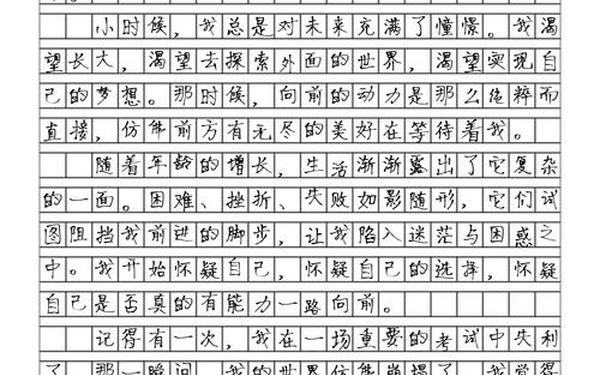 小时候，我总是对未来充满了憧憬。我渴
望长大，渴望去探索外面的世界，渴望实现自
己的梦想。那时候，向前的动力是那么纯粹而
直接，仿佛前方有无尽的美好在等待着我。
随着年龄的增长，生活渐渐露出了它复杂
的一面。困难、挫折、失败如影随形，它们试
图阻挡我前进的脚步，让我陷入迷茫与困惑之
中。我开始怀疑自己，怀疑自己的选择，怀疑
自己是否真的有能力一路向前。
记得有一次，我在一场重要的考试中失利
了，那一瞬间，我的世界仿佛崩塌了。我觉得